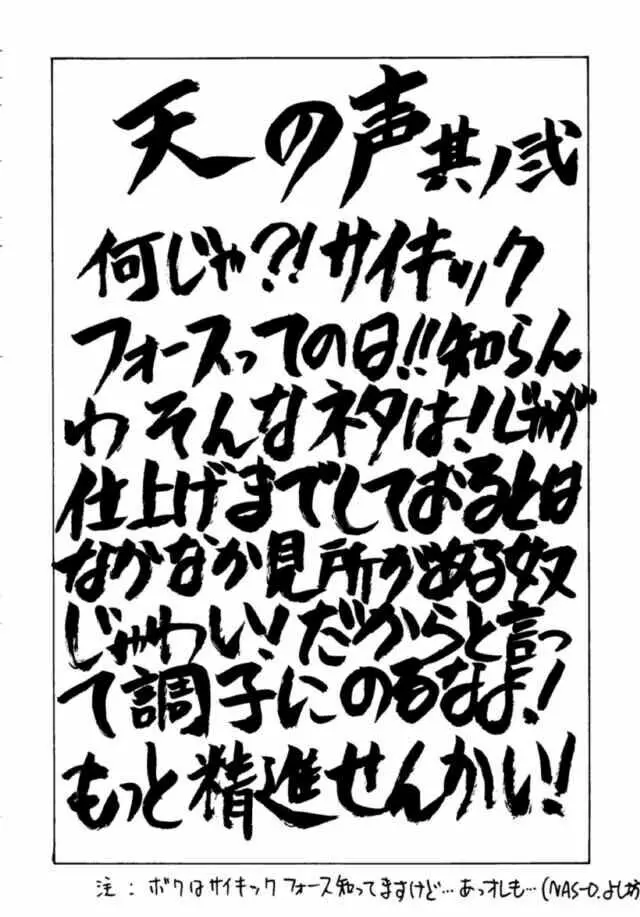 天の声其ノ弐
何じゃ?!サイキック
フォースっての日!!知らん
わそんなネタは!じゃが
仕上げまでしておるとは
なかなか見所がある奴
じゃわい!だからと言っ
て調子にのるなよ!
もっと精進せんかい!
注:ボクはサイキックフォース知ってますけど…あっオレも…(NAS-O.よし坊